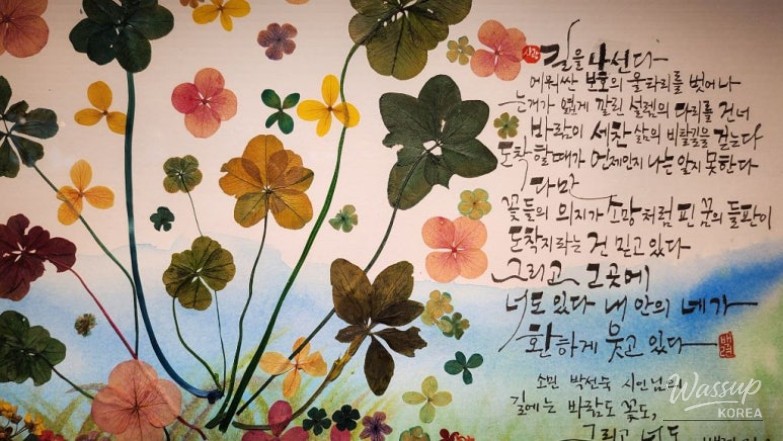 길을 나선다
에워싼 보호의 울타리를 벗어나
엷게 깔린 설렘의 다리를 건너
바람이 세찬 삶의 비탈길을 걷는다
도착할 때가 언제인지 나는 알지 못한다
다만
꽃들의 의지가 소망처럼 핀 꿈의 들판이
도착지라는 건 믿고 있다
그리고 그곳에
너도 있다 내 안의 네가
환하게 웃고 있다
소민 박선숙 시인님의
길에는 바람도 꽃도,
그리고 너도
Wassup
KOREA